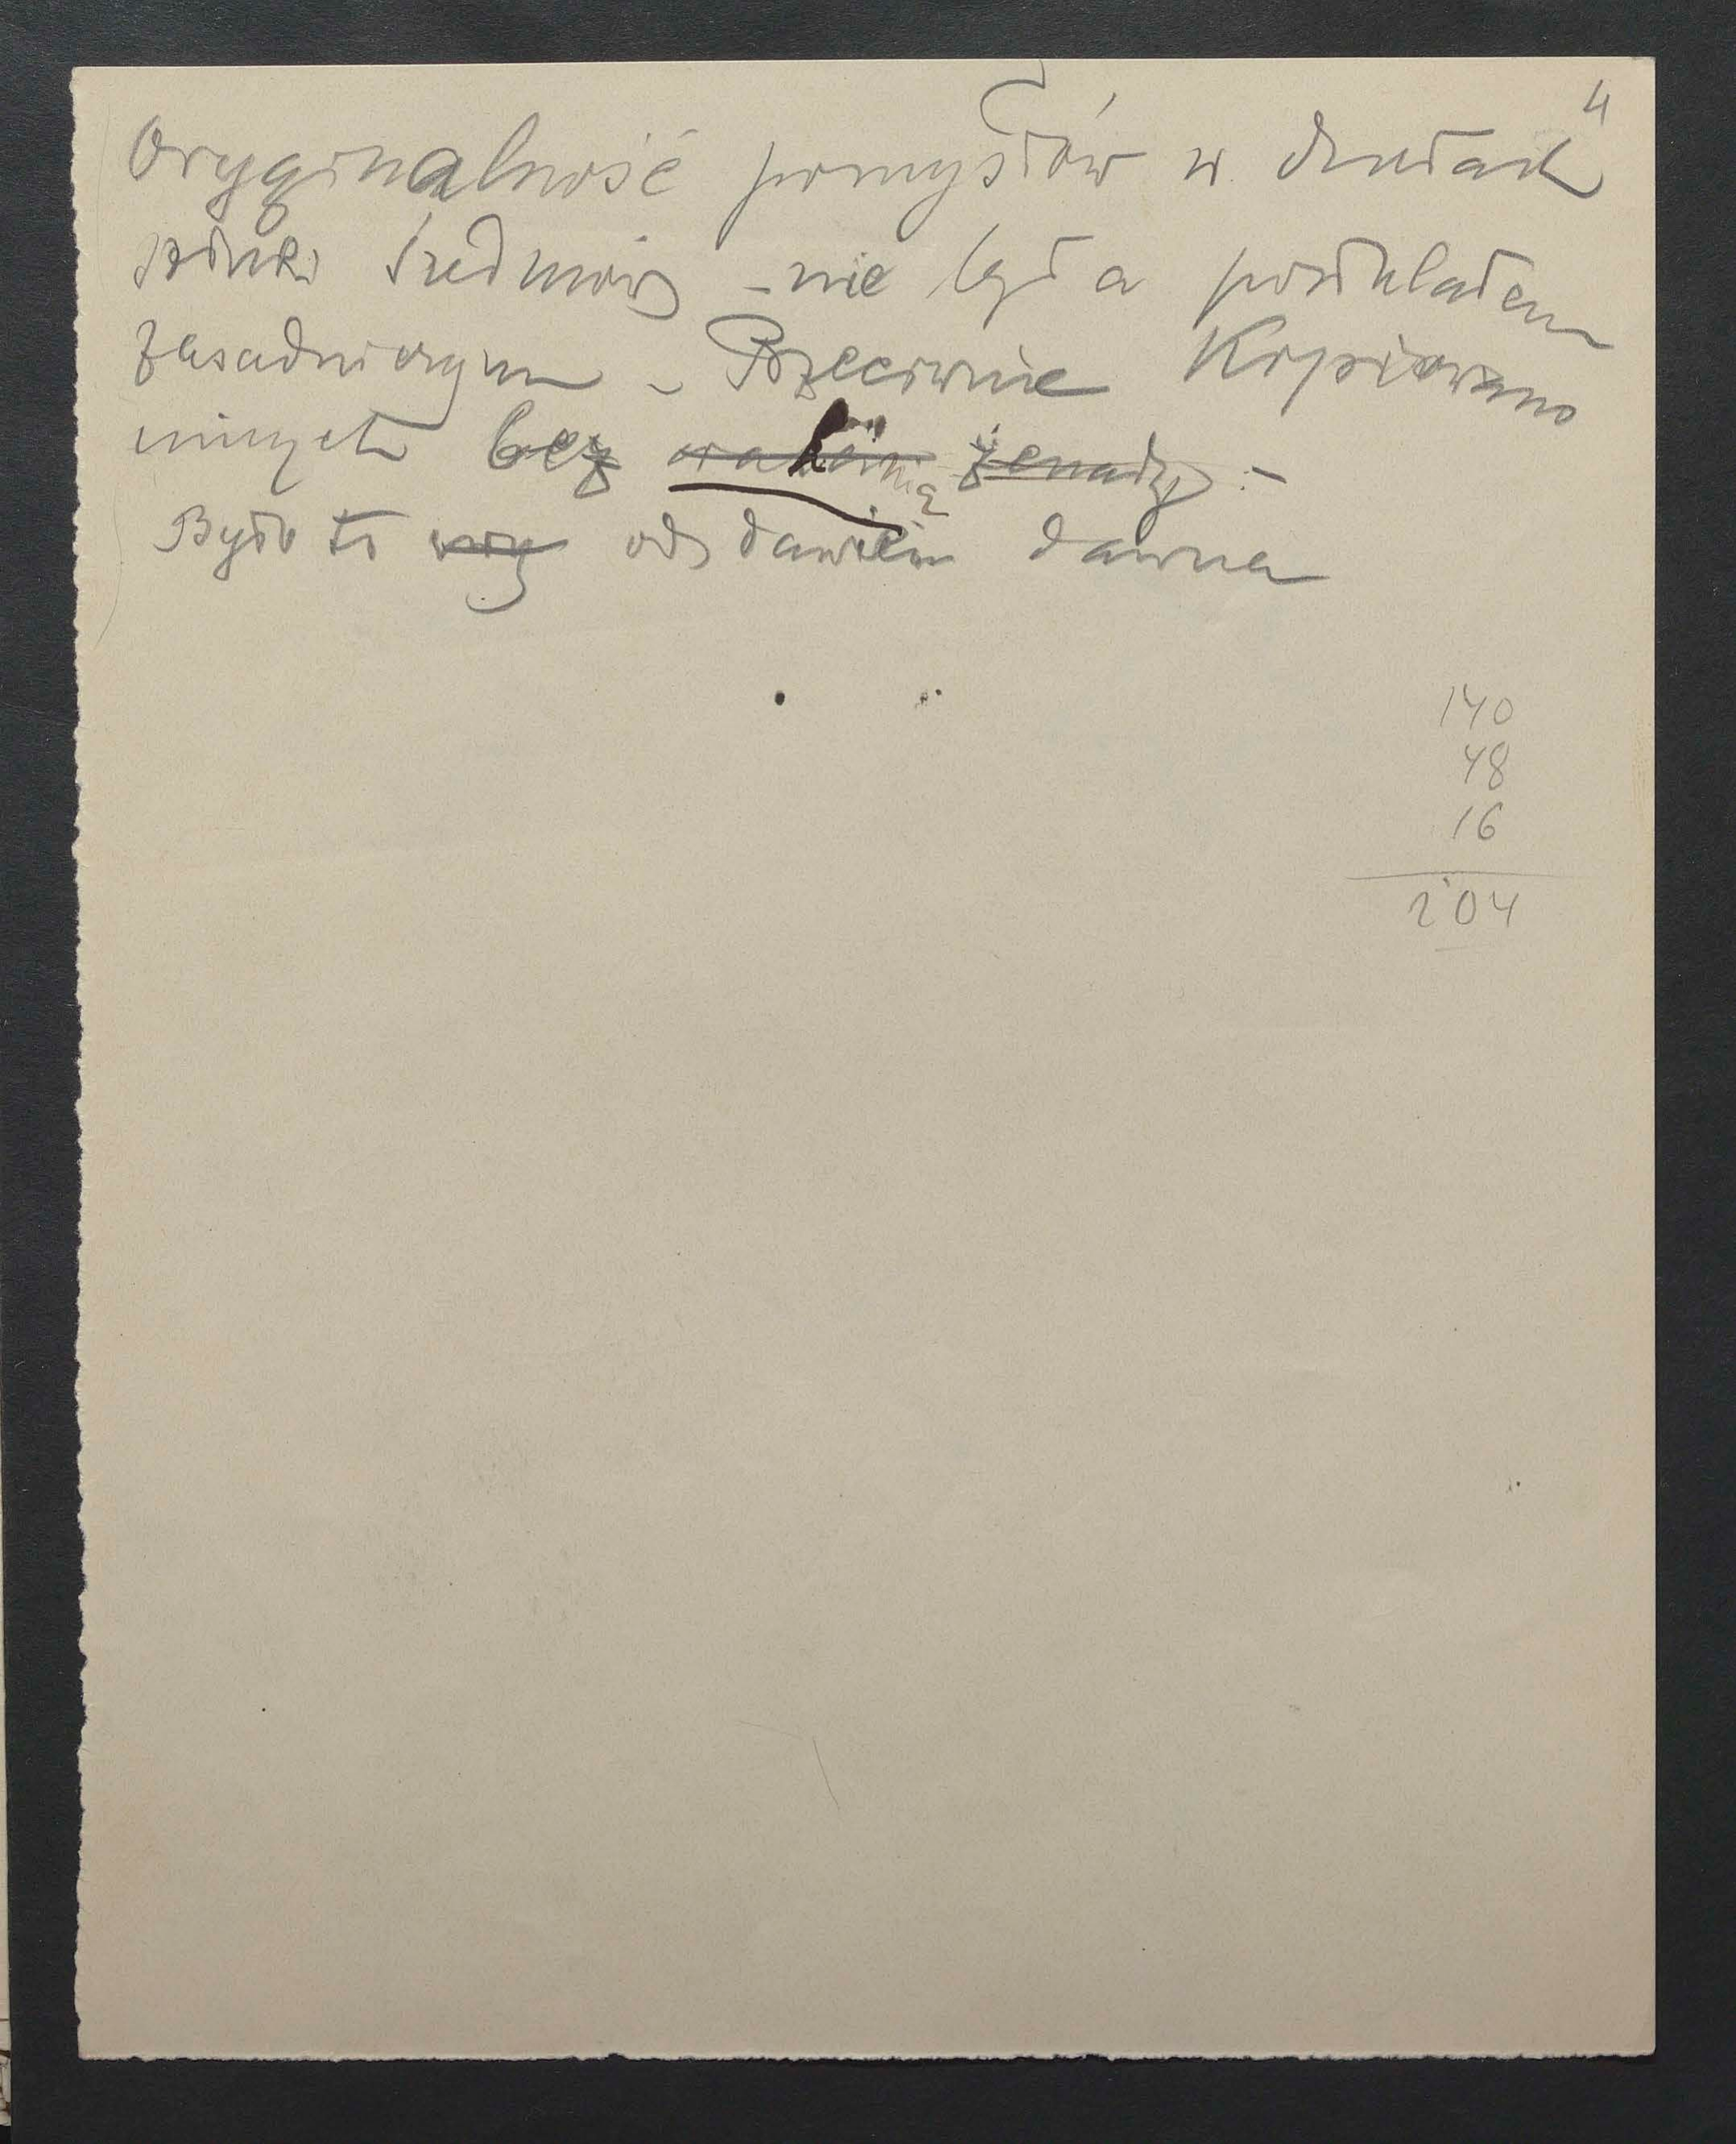 4
Oryginalność pomysłów w dziełach
sztuki średniow – nie była postulatem
zasadniczym – Przeciwnie Kopiowano
innych bez wahania żenady. –
Było to od dawien dawna
140
48
16
204